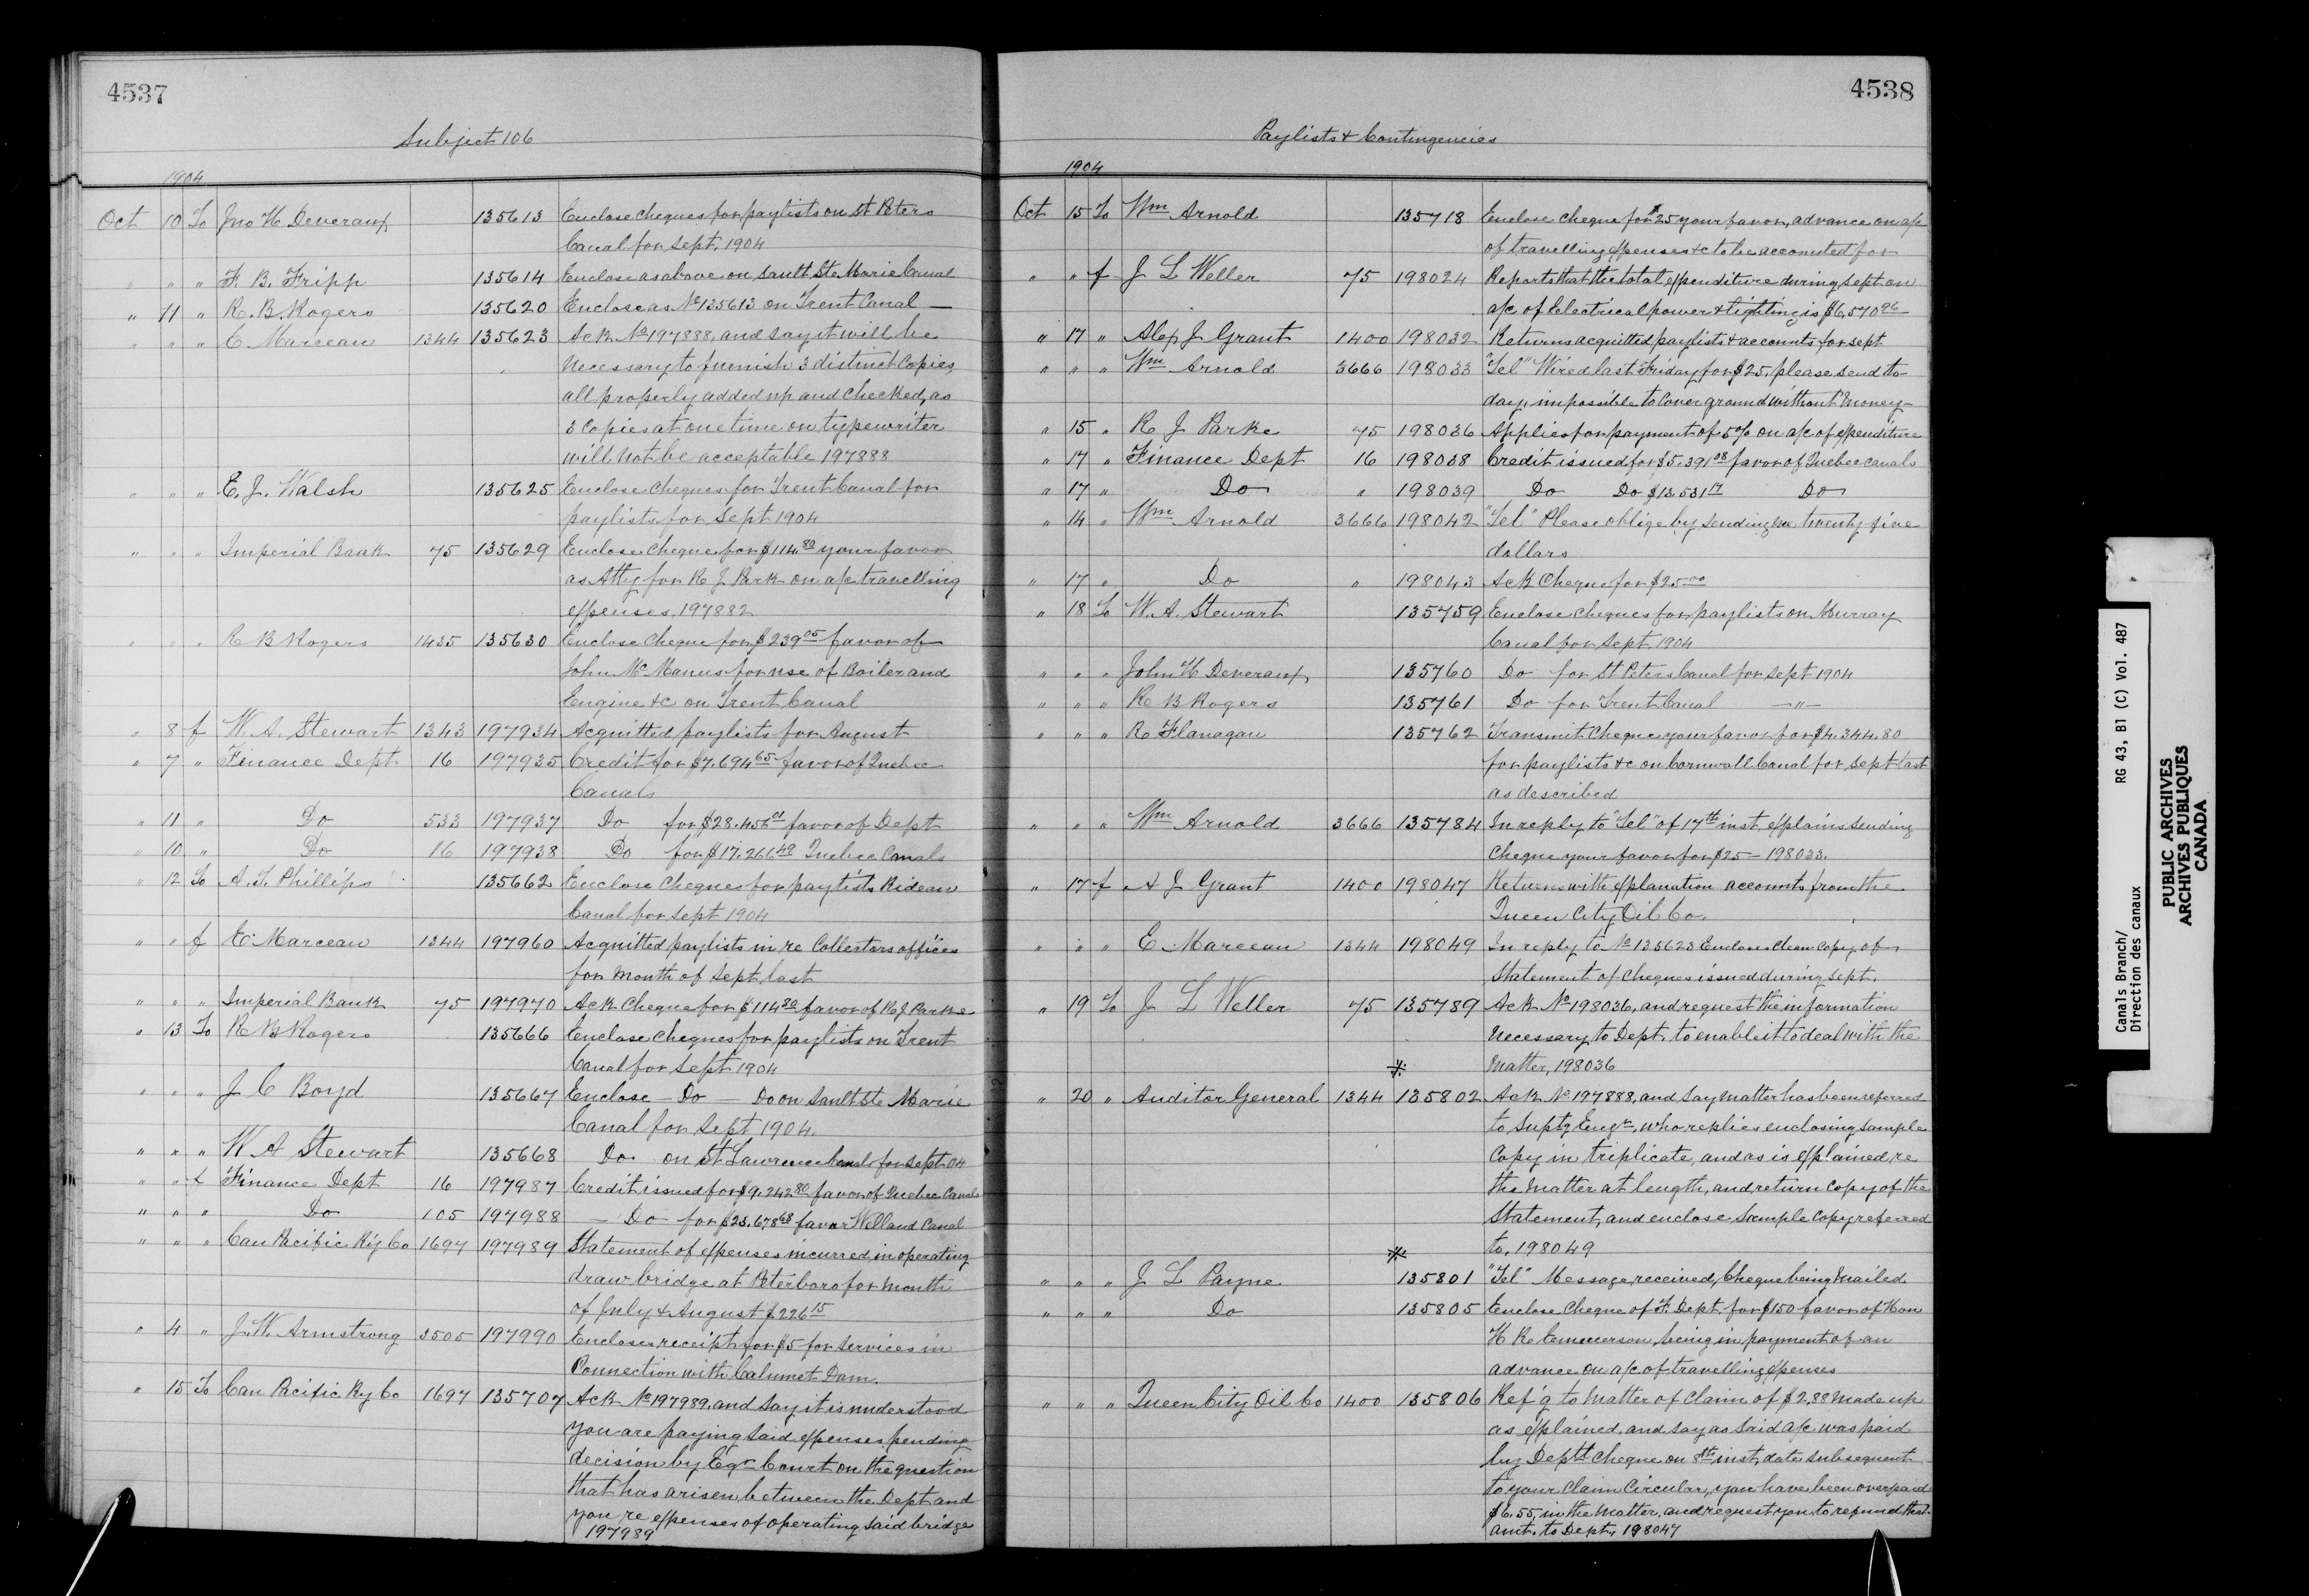 4537
Subject 106
1904
Oct 10 To Jno H Deveraux 135613 Enclose cheques for paylists on St Peters
Canal for Sept. 1904
" " " F. B. Fripp 135614 Enclose as above on Sault Ste Marie Canal
" 11 " R. B. Rogers 135620 Enclose as No 135613 on Trent Canal —
" " " E Marceau 1344 135623 Ack No 197888, and say it will be
necessary to furnish 3 distinct copies,
all properly added up and checked, as
3 copies at one time on typewriter
will not be acceptable 197888
" " " E. J. Walsh 135625 Enclose cheques for Trent Canal for
paylists for Sept 1904
" " " Imperial Bank 75 135629 Enclose cheque for $114.80 your favor
as Atty for R J Park on a/c travelling
expenses, 197882
" " " R B Rogers 1435 135630 Enclose cheque for $239.05 favor of
John McManus for use of Boiler and
Engine &c on Trent Canal
" 8 f W. A. Stewart 1343 197934 Acquitted paylists for August
" 7 " Finance Dept. 16 197935 Credit for $7,694.65 favor of Quebec
Canals
" 11 " Do 533 197937 Do for $28.456.01 favor of Dept
" 10 " Do 16 197938 Do for $17.266.49 Quebec Canals
" 12 To A. T. Phillips 135662 Enclose cheques for paylists Rideau
Canal for Sept 1904
" " f E. Marceau 1344 197960 Acquitted paylists in re Collectors offices
for month of Sept. last
" " " Imperial Bank 75 197970 Ack cheque for $114.80 favor of R J. Parke
" 13 To R B Rogers 135666 Enclose cheques for paylists on Trent
Canal for Sept 1904
" " " J C Boyd 135667 Enclose — Do — Do on Sault Ste Marie
Canal for Sept 1904.
" " " W A Stewart 135668 Do on St Lawrence Canals for Sept. 04
" " f Finance Dept 16 197987 Credit issued for $9.242.80 favor of Quebec Canals
" " " Do 105 197988 — Do for $23.678.68 favor Welland Canal
" " " Can Pacific Ry Co 1697 197989 Statement of expenses incurred in operating
draw bridge at Peterboro for month
of July & August $226.15
" 4 " J. W. Armstrong 3505 197990 Encloses receipt for $5 for services in
Connection with Calumet Dam.
" 15 To Can Pacific Ry Co 1697 135707 Ack No 197989, and say it is understood
you are paying said expenses pending
decision by Exqr Court on the question
that has arisen between the Dept and
you, re expenses of operating said bridge
197989
4538
Paylists & Contingencies
1904
Oct 15 To Wm Arnold 135718 Enclose cheque for $25 your favor, advance on a/c
of travelling expenses &c to be accounted for
" " f J L Weller 75 198024 Reports that the total expenditure during Sept on
a/c of Electrical power & lighting is $6,570.96 —
" 17 " Alex J Grant 1400 198032 Returns acquitted paylists & accounts for Sept
" " " Wm Arnold 3666 198033 "Tel" Wired last Friday for $25. please send to-
day, impossible to cover ground without money —
" 15 " R J Parke 75 198036 Applies for payment of 5% on a/c of expenditure
" 17 " Finance Dept 16 198038 Credit issued for $5.391.08 favor of Quebec Canals
" 17 " Do " 198039 Do Do $13.531.17 Do
" 14 " Wm Arnold 3666 198042 "Tel" Please oblige by sending me twenty five
dollars
" 17 " Do " 198043 Ack Cheque for $25.00
" 18 To W. A. Stewart 135759 Enclose cheques for paylists on Murray
Canal for Sept 1904
" " " John H Deveraux 135760 Do for St Peters Canal for Sept 1904
" " " R B Rogers 135761 Do for Trent Canal — " —
" " " R Flanagan 135762 Transmit cheque your favor for $4.344.80
for paylists &c on Cornwall Canal for Sept last
as described
" " " Wm Arnold 3666 135784 In reply to "Tel" of 17th inst, explains sending
cheque your favor for $25 — 198033.
" 17 f A J Grant 1400 198047 Returns with explanation accounts from the
Queen City Oil Co.
" " " E. Marceau 1344 198049 In reply to No 135623 Encloses clean copy of
Statement of cheques issued during Sept.
" 19 To J L Weller 75 135789 Ack No 198036, and request the information
necessary to Dept. to enable it to deal with the
matter, 198036
" 20 " Auditor General 1344 135802 Ack No 197888, and say matter has been referred
to Suptg Engr, who replies enclosing sample
copy in triplicate, and as is explained re
the matter at length, and return copy of the
Statement, and enclose sample copy referred
to, 198049
" " " J L Payne 135801 "Tel" Message received, cheque being mailed
" " " Do 135805 Enclose cheque of F. Dept. for $150 favor of Hon
H R Emmerson, being in payment of an
advance on a/c of travelling expenses
" " " Queen City Oil Co 1400 135806 Ref'g to matter of claim of $2.88 made up
as explained, and say as said a/c was paid
by Deptl cheque on 8th inst, date subsequent
to your claim circular, you have been overpaid
$6.55, in the matter, and request you to refund that
amt. to Dept, 198047
Canals Branch/
Direction des canaux
RG 43, B1 (C) Vol. 487
PUBLIC ARCHIVES
ARCHIVES PUBLIQUES
CANADA